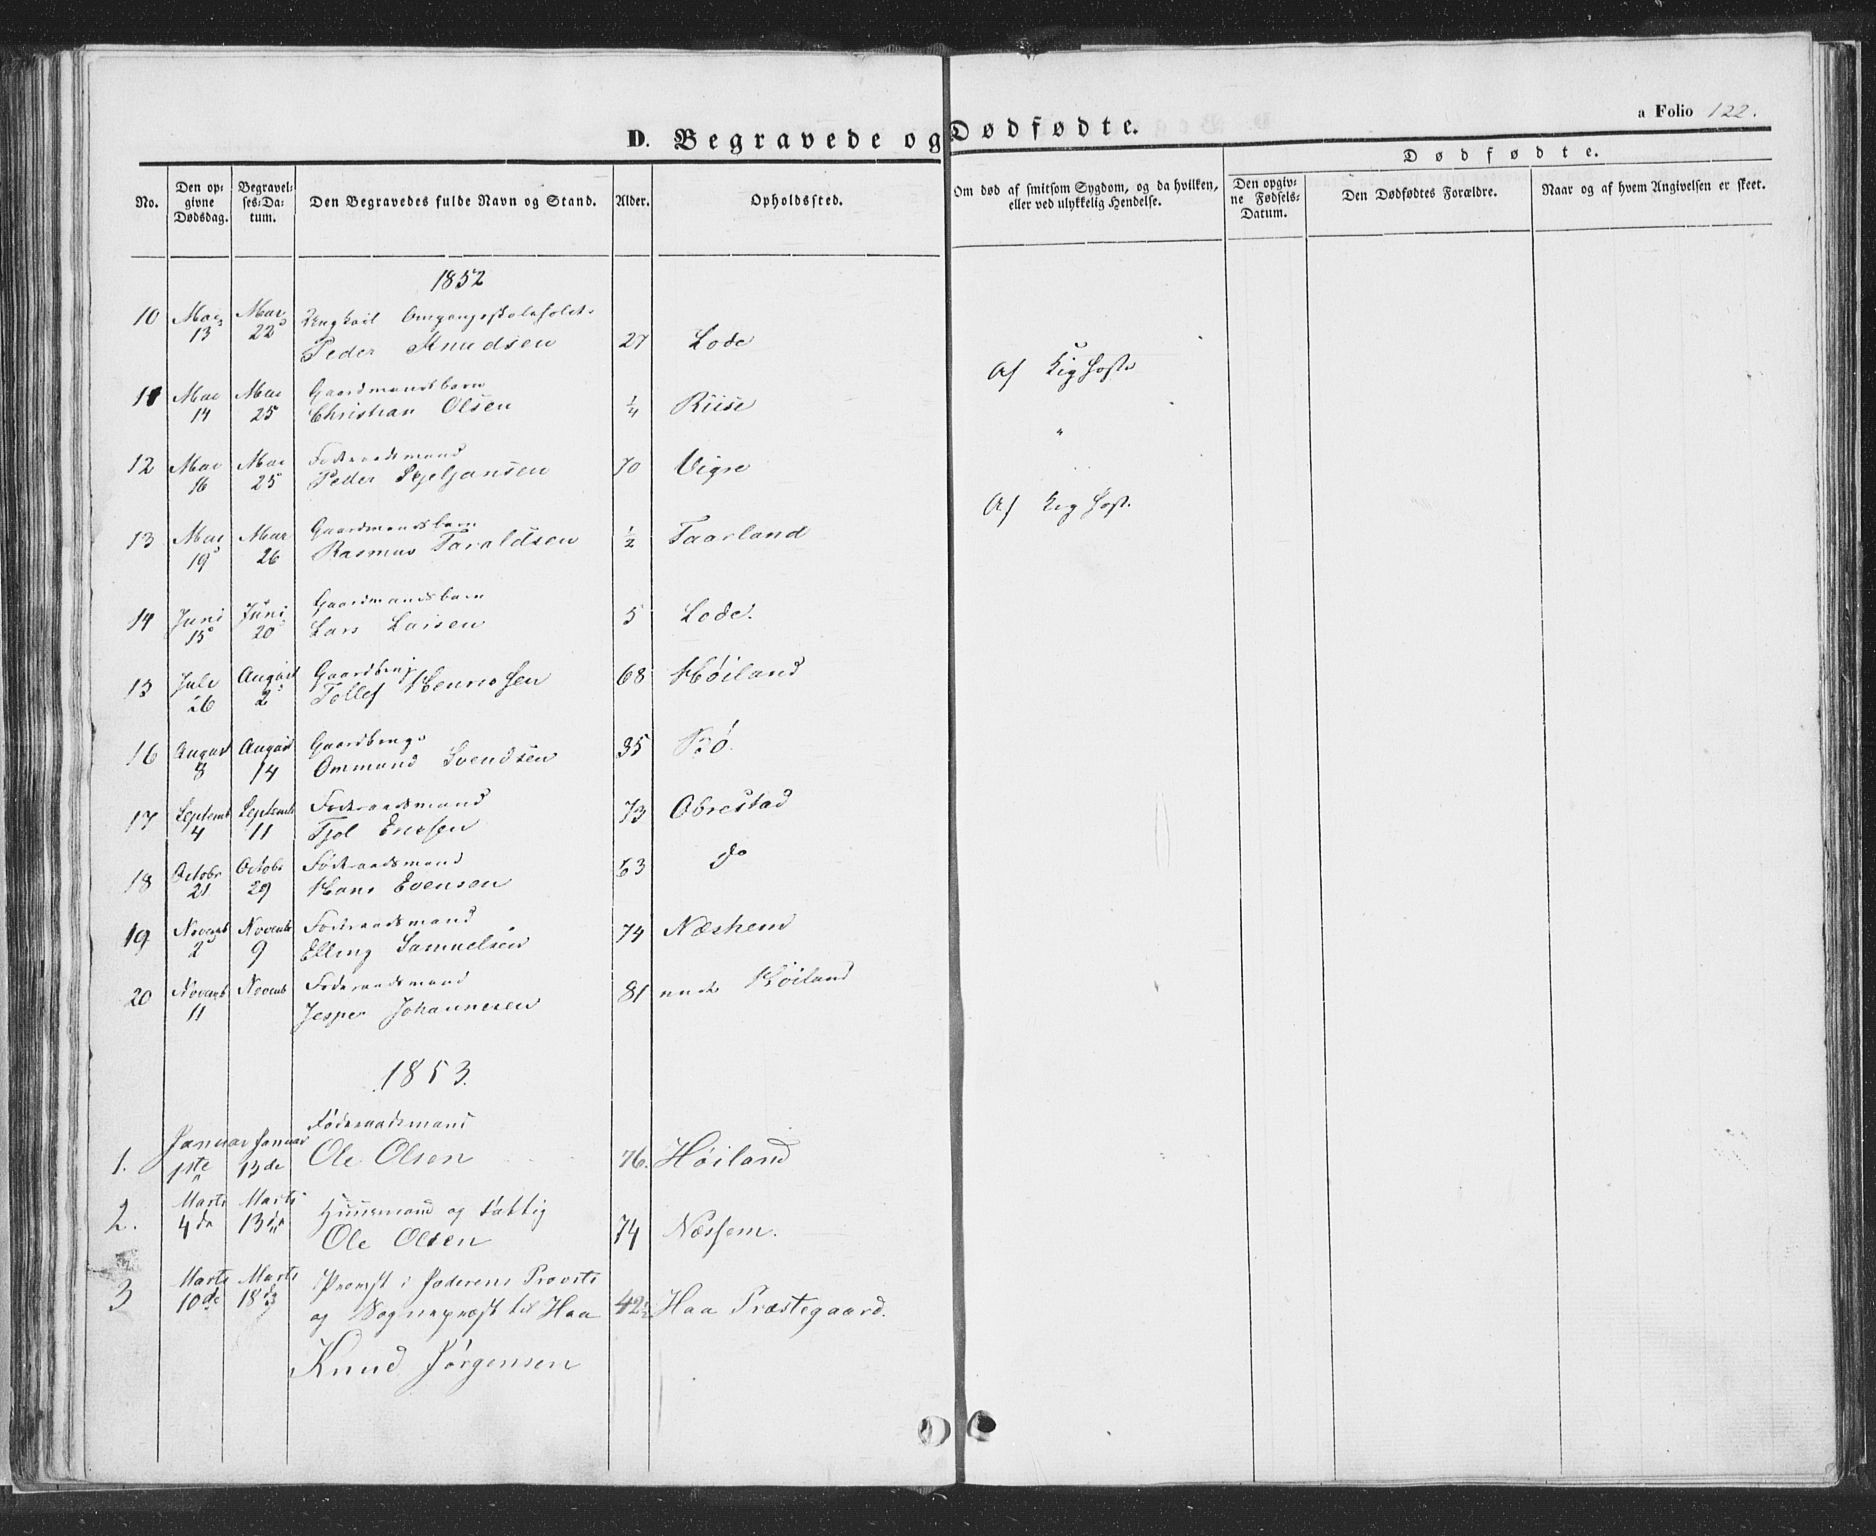 a Folio 122.
D. Begravede og Dødfødte.
No.
Den opgivne Dødsdag.
Begravelses-Datum.
Den Begravedes fulde Navn og Stand.
Alder.
Opholdssted.
Om død af smitsom Sygdom, og da hvilken, eller ved ulykkelig Hendelse.
Dødfødte.
Den opgivne Fødsels-Datum.
Den Dødfødtes Forældre.
Naar og af hvem Angivelsen er skeet.
1852
10 Mai 13 Mai 22 Ungkarl Omgangsskoleholder
Peder Knudsen 27 Lode
11 Mai 14 Mai 25 Gaardmandsbarn
Christian Olsen 1/4 Riise Af Kighoste
12 Mai 16 Mai 25 Føderaadsmand
Peder 70 Vigre "
13 Mai 19 Mai 26 Gaardmandsbarn
Rasmus Taraldsen 1/2 Taarland Af Kighoste
14 Juni 15 Juni 20 Gaardmandsbarn
Lars Larsen 5 Lode.
15 Juli 26 August 2 Gaardbrug
Tollef 68 Høiland
16 August 8 August 14 Gaardbruger
Ommund Svendsen 35 Bø.
17 Septemb 4 Septemb 11 Føderaadsmand
73 Obrestad
18 Octobr 21 Octobr 29 Føderaadsmand
Hans Evensen 63 do
19 Novemb 2 Novemb 9 Føderaadsmand
Elling Samuelsen 74 Næshem
20 Novemb 11 Novemb Føderaadsmand
Jesper Johannesen 81 Høiland
1853.
1. Januar 1ste Januar 13de Føderaadsmand
Ole Olsen 76. Høiland
2. Marts 4de Marts 13de Huusmand og fattig
Ole Olsen 74 Næshem.
3 Marts 10de Marts 18de Provst i Jæderens Provsti
og Sognepræst til Haa 42 1/2 Haa Præstegaard.
Knud Jørgensen